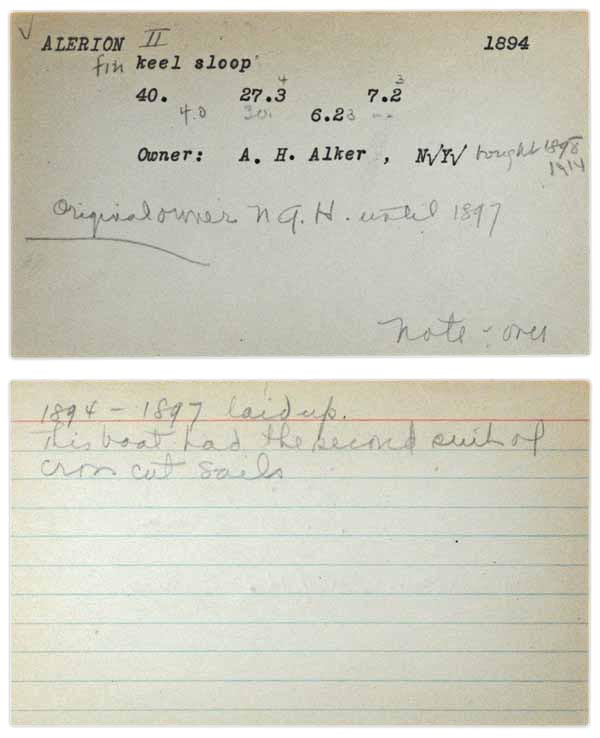 √
ALERION II 1894
fin keel sloop
40. 27.3 4 7.2 3
4.0 30. 6.2 3 --
Owner: A. H. Alker , N√Y√ bought 1898
1914
Original owner N G. H. until 1897
Note - over
1894 - 1897 laid up.
This boat had the second suit of
cross cut sails